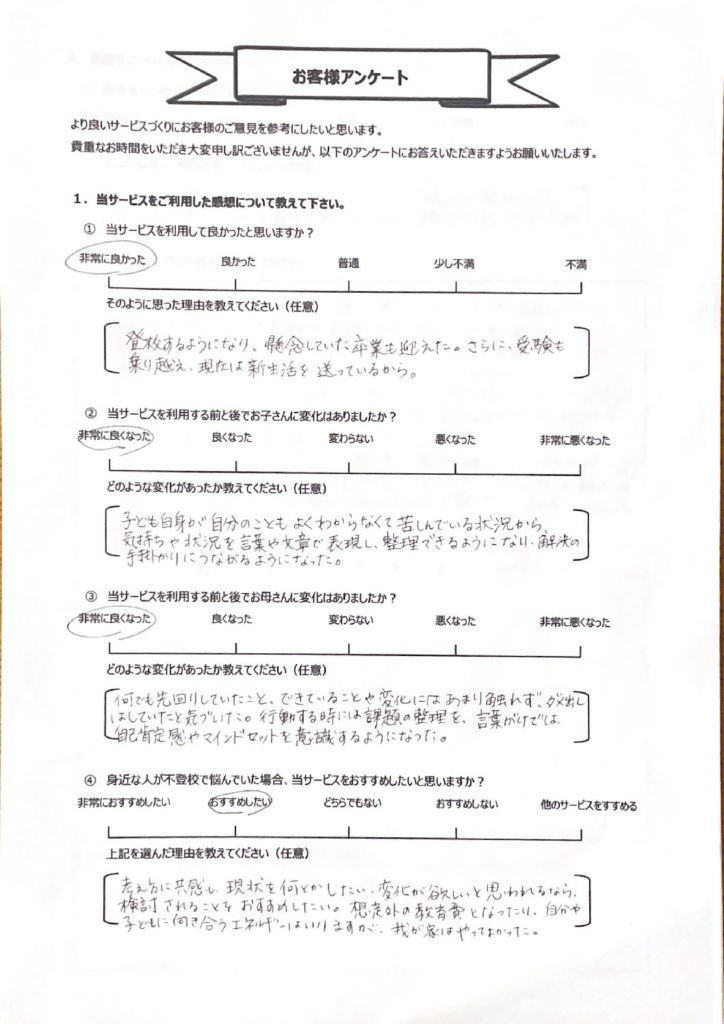 お客様アンケート
より良いサービスづくりにお客様のご意見を参考にしたいと思います。
貴重なお時間をいただき大変申し訳ございませんが、以下のアンケートにお答えいただきますようお願いいたします。
１．当サービスをご利用した感想について教えて下さい。
① 当サービスを利用して良かったと思いますか？
非常に良かった 良かった 普通 少し不満 不満
そのように思った理由を教えてください（任意）
登校するようになり、懸念していた卒業も迎えた。さらに、受験も
乗り越え、現在は新生活を送っているから。
② 当サービスを利用する前と後でお子さんに変化はありましたか？
非常に良くなった 良くなった 変わらない 悪くなった 非常に悪くなった
どのような変化があったか教えてください（任意）
子ども自身が自分のこともよくわからなくて苦しんでいる状況から、
気持ちや状況を言葉や文章で表現し、整理できるようになり、解決の
手掛かりにつながるようになった。
③ 当サービスを利用する前と後でお母さんに変化はありましたか？
非常に良くなった 良くなった 変わらない 悪くなった 非常に悪くなった
どのような変化があったか教えてください（任意）
何でも先回りしていたこと、できていることや変化にはあまり触れず、ダメ出し
はしていたと気づいた。行動する時には課題の整理を、言葉がけでは、
自己肯定感やマインドセットを意識するようになった。
④ 身近な人が不登校で悩んでいた場合、当サービスをおすすめしたいと思いますか？
非常におすすめしたい おすすめしたい どちらでもない おすすめしない 他のサービスをすすめる
上記を選んだ理由を教えてください（任意）
考え方に共感し、現状を何とかしたい、変化が欲しいと思われるなら、
検討されることをおすすめしたい。想定外の教育費となったり、自分や
子どもに向き合うエネルギーはいりますが、我が家はやってよかった。